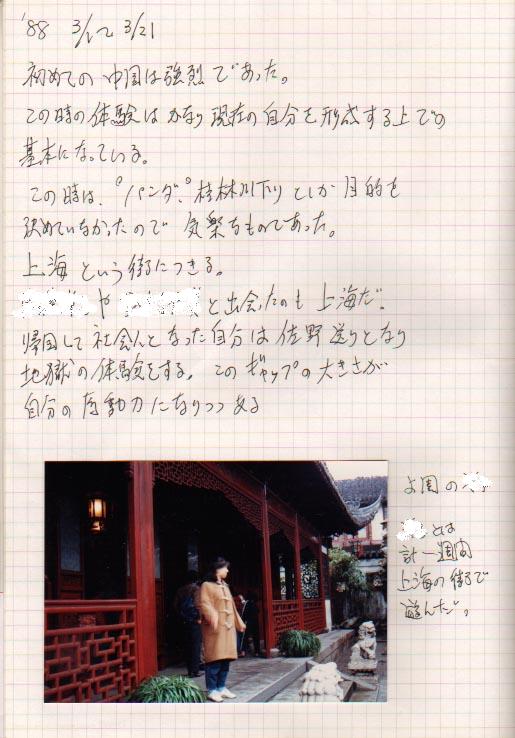 '88 3/1〜3/21
初めての中国は強烈であった。
この時の体験はかなり現在の自分を形成する上での
基本になっている。
この時は、"パンダ"、桂林川下りとしか目的を
決めていなかったので 気楽なものであった。
上海という街につきる。
や と出会ったのも上海だ。
帰国して社会人となった自分は佐野送りとなり
地獄の体験をする。このギャップの大きさが
自分の原動力になりつつある
豫園の
とは
計一週間
上海の街で
遊んだ。